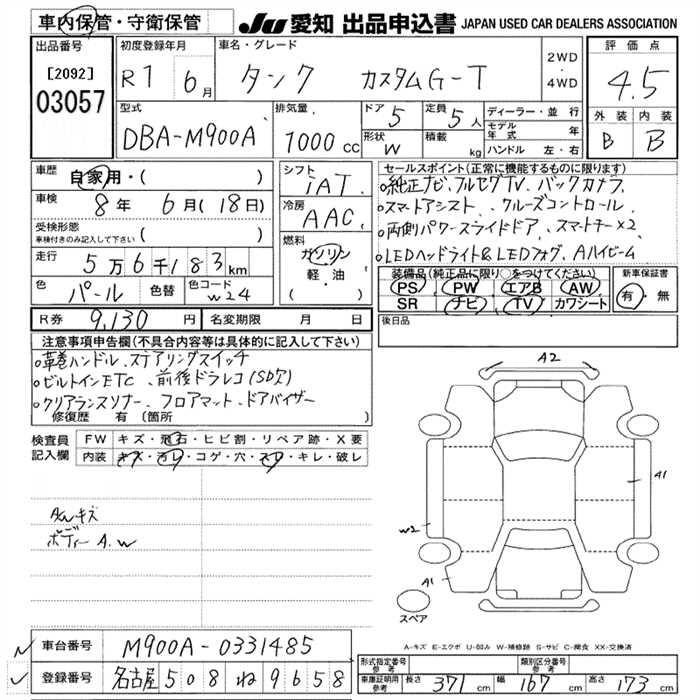 車内保管・守衛保管
JU 愛知 出品申込書 JAPAN USED CAR DEALERS ASSOCIATION
出品番号
[2092]
03057
初度登録年月
R1 6月
車名・グレード
タンク カスタムG-T
2WD
・
4WD
評価点
4.5
外装 内装
B B
型式
DBA-M900A
排気量
1000cc
ドア 5
形状 W
定員 5人
積載 kg
ディーラー・並行
モデル年式 年
ハンドル 左・右
車歴
自家用・( )
車検
8年 6月(18日)
受検形態
車検付きのみ記入して下さい ( )
走行
5万6千183km
色
パール 色替
色コード
W24
シフト
IAT
冷房
AAC
燃料
ガソリン
軽・油
・( )
セールスポイント(正常に機能するものに限ります)
○純正ナビ、フルセグTV、バックカメラ、
○スマートアシスト、クルーズコントロール、
○両側パワースライドドア、スマートキー×2
○LEDヘッドライト&LEDフォグ、Aハイビーム
装備品(純正品に限り○をつけてください)
PS PW エアB AW
SR ナビ TV カワシート
新車保証書
有・無
R券 9,130円 名変期限 月 日
後日品
注意事項申告欄(不具合内容等は具体的に記入して下さい)
○革巻ハンドル、ステアリングスイッチ
○ビルトインETC、前後ドラレコ(SD欠)
○クリアランスソナー、フロアマット、ドアバイザー
修復歴 有(箇所 )
検査員
記入欄
FW キズ・飛石・ヒビ割・リペア跡・X要
内装 キズ・汚レ・コゲ・穴・スレ・キレ・破レ
AWキズ
ボディーA.W
A2
A1
W2
A1
スペア
A-キズ E-エクボ U-凹み W-補修跡 S-サビ C-腐食 XX-交換済
車台番号 M900A-0331485
登録番号 名古屋 508 ね 9658
形式指定番号 参考
類別区分番号 参考
車庫証明用 参考 長さ 371cm 幅 167cm 高さ 173cm